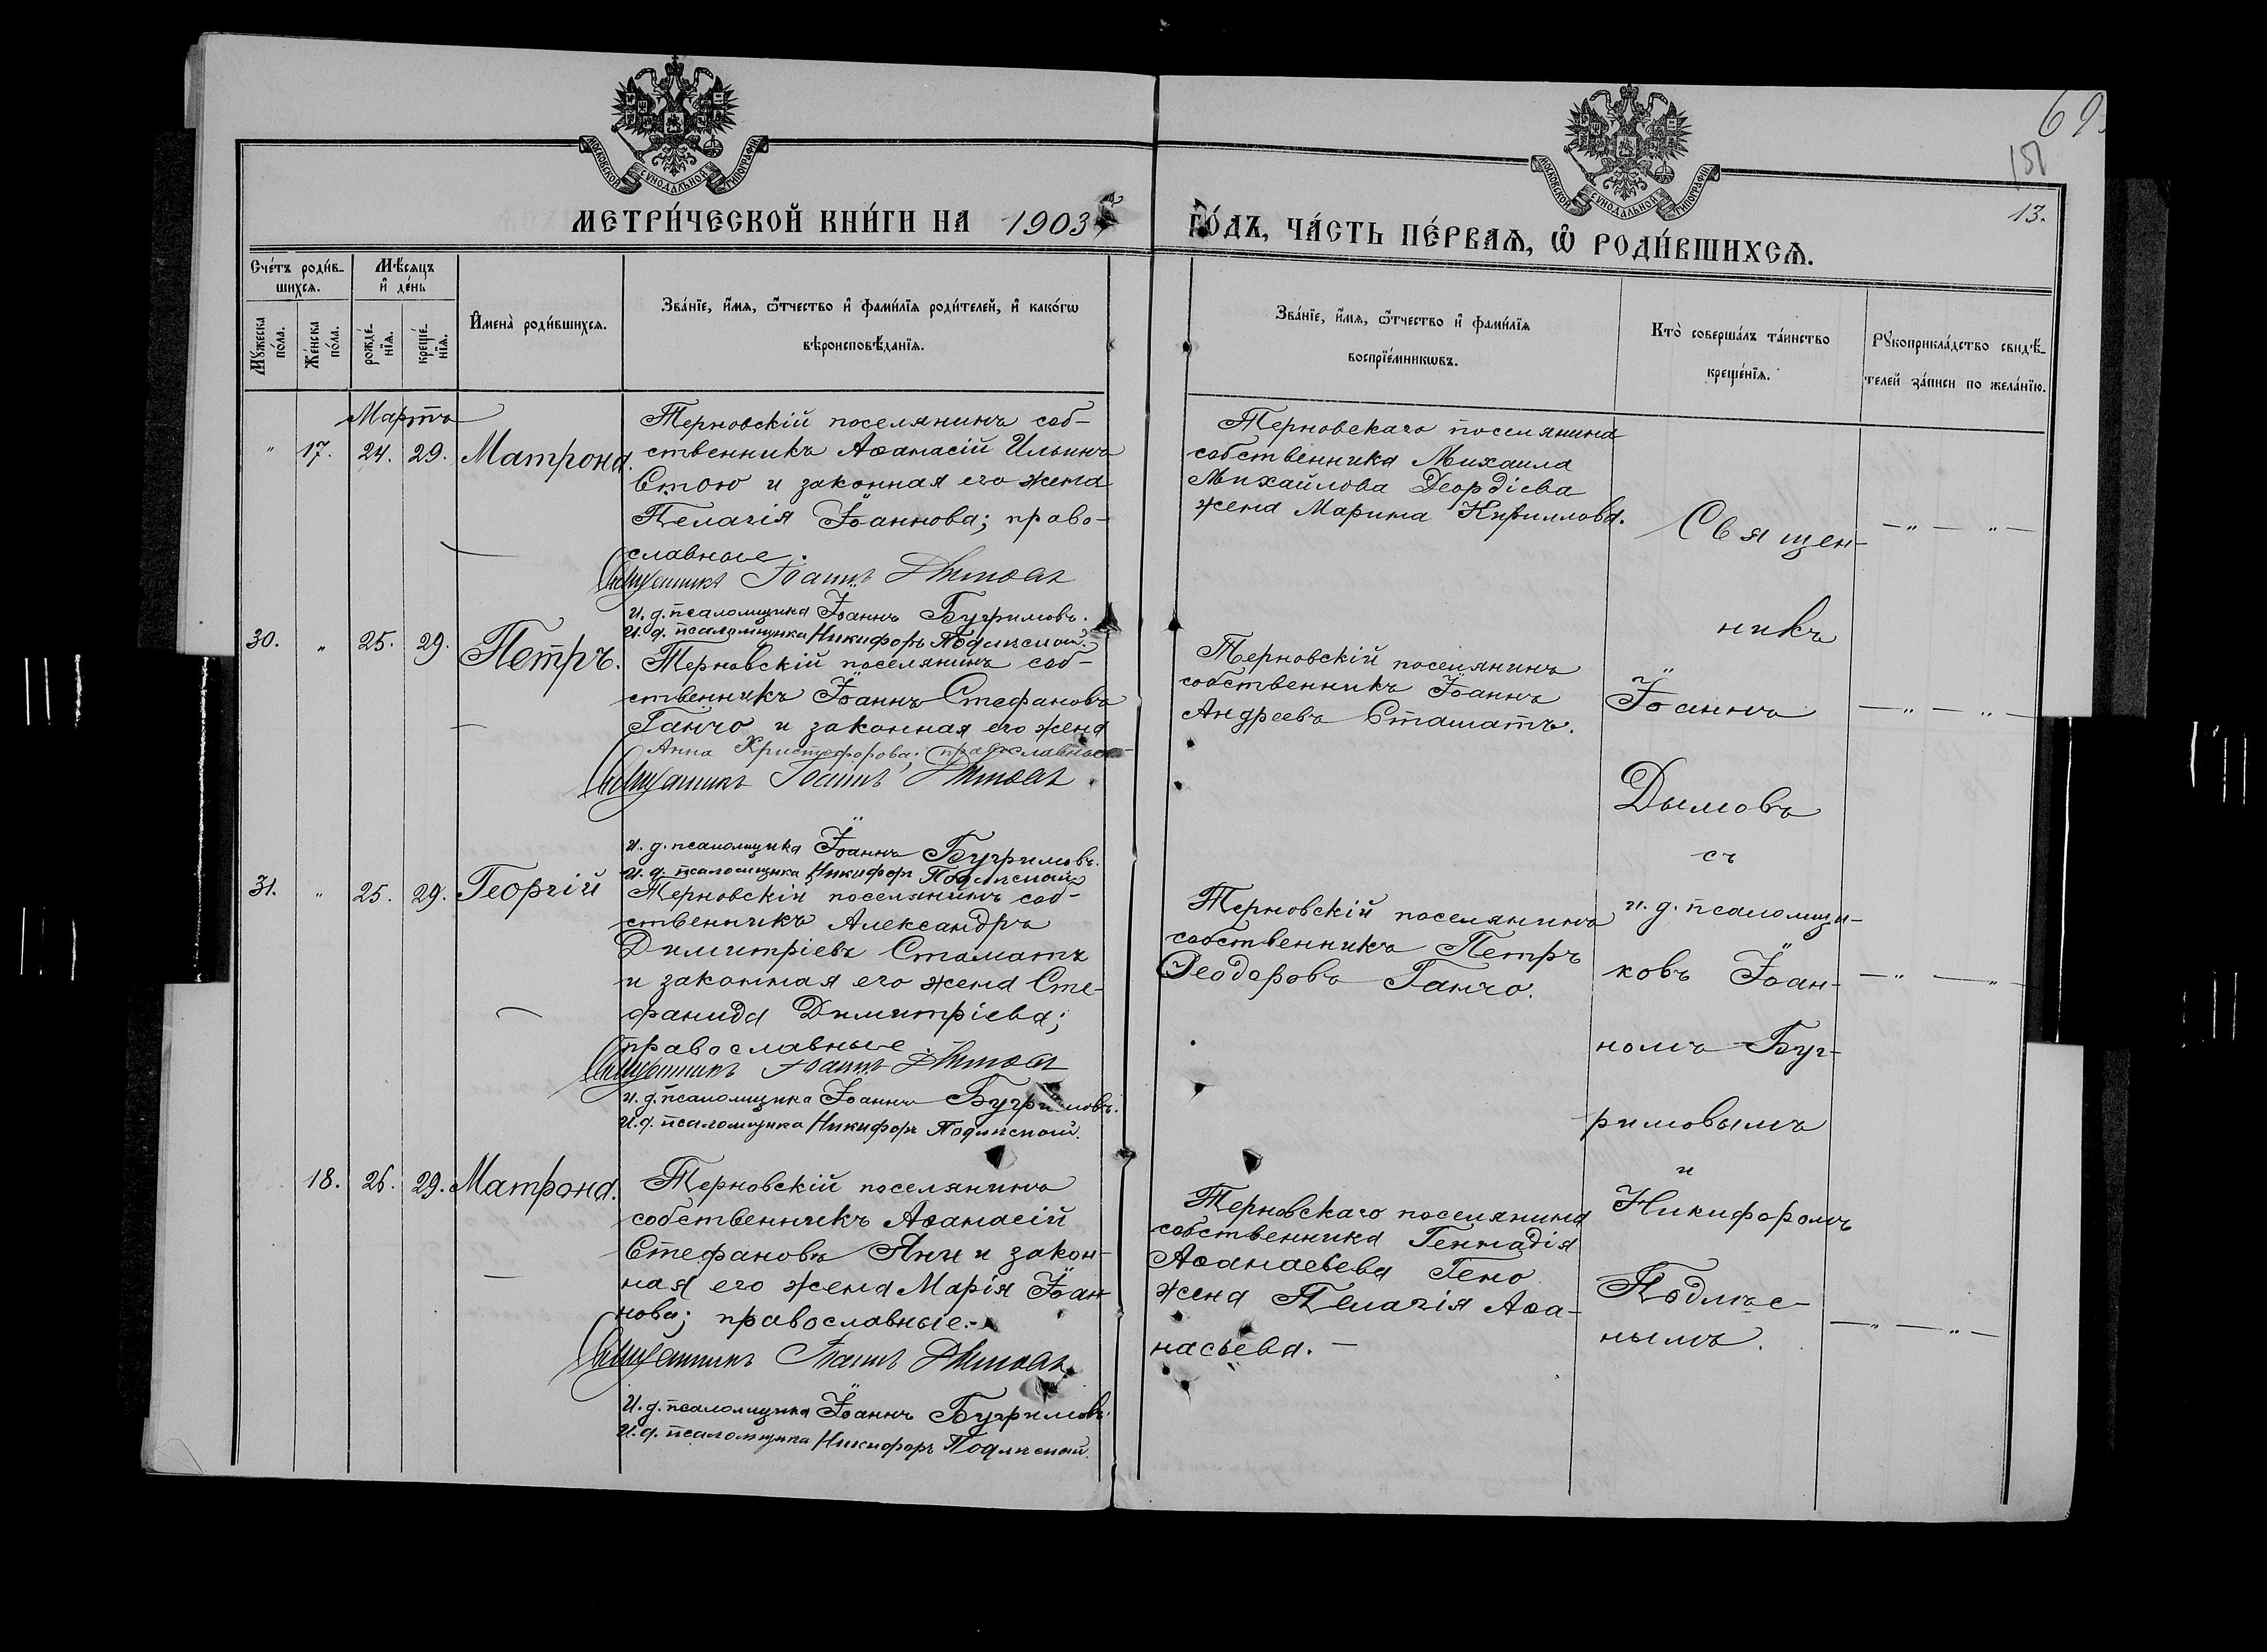 69.
151
13.
МОСКОВСКОЙ СѴНОДАЛЬНОЙ ТИПОГРАФІИ
МОСКОВСКОЙ СѴНОДАЛЬНОЙ ТИПОГРАФІИ
МЕТРИ́ЧЕСКОЙ КНИ́ГИ НА 1903
ГО́ДЪ, ЧА́СТЬ ПЕ́РВАѦ, Ѡ҆ РОДИ́ВШИХСѦ.
Сче́тъ роди́в-
шихсѧ.
Мѣ́сѧцъ
и҆ де́нь
Мꙋ́жеска
по́ла.
Же́нска
по́ла.
рожде́-
нїѧ.
креще́-
нїѧ.
И҆мена̀ роди́вшихсѧ.
Зва́нїе, и҆́мѧ, ѻ҆́тчество и҆ фами́лїѧ роди́телей, и҆ како́гѡ
вѣроисповѣ́данїѧ.
Зва́нїе, и҆́мѧ, ѻ҆́тчество и҆ фами́лїѧ
воспрїе́мникѡвъ.
Кто̀ соверша́лъ та́инство
креще́нїѧ.
Рꙋкоприкла́дство свидѣ́-
телей за́писи по жела́нїю.
Мартъ
" 17. 24. 29. Матрона.
Терновскій поселянинъ соб-
ственникъ Аѳанасій Ильинъ
Стою и законная его жена
Пелагія Іоаннова; право-
славные.
Священникъ Іоаннъ Дымовъ
и. д. псаломщика Іоаннъ Бугримовъ.
И. д. псаломщика Никифоръ Подлѣсный.
Терновскаго поселянина
собственника Михаила
Михайлова Деордіева
жена Марина Кириллова.
— " — " —
30. " 25. 29. Петръ.
Терновскій поселянинъ соб-
ственникъ Іоаннъ Стефановъ
Ганчо и законная его жена
Анна Христофорова; православные
Священникъ Іоаннъ Дымовъ
и. д. псаломщика Іоаннъ Бугримовъ.
и. д. псаломщика Никифоръ Подлѣсный
Терновскій поселянинъ
собственникъ Іоаннъ
Андреевъ Стаматъ.
— " — " —
31. " 25. 29. Георгій
Терновскій поселянинъ соб-
ственникъ Александръ
Димитріевъ Стаматъ
и законная его жена Сте-
фанида Димитріева;
православные
Священникъ Іоаннъ Дымовъ
и. д. псаломщика Іоаннъ Бугримовъ.
И. д. псаломщика Никифоръ Подлѣсный.
Терновскій поселянинъ
собственникъ Петръ
Ѳеодоровъ Ганчо.
— " — " —
18. 26. 29. Матрона.
Терновскій поселянинъ
собственникъ Аѳанасій
Стефановъ Янчи и закон-
ная его жена Марія Іоан
нова; православные.
Священникъ Іоаннъ Дымовъ.
И. д. псаломщика Іоаннъ Бугримовъ.
И. д. псаломщика Никифоръ Подлѣсный.
Терновскаго поселянина
собственника Геннадія
Аѳанасьева Гено
жена Пелагія Аѳа-
насьева. —
— " — " —
Священ-
никъ
Іоаннъ
Дымовъ
съ
и. д. псаломщи-
ковъ Іоан-
номъ Буг-
римовымъ
и
Никифоромъ
Подлѣс-
нымъ.